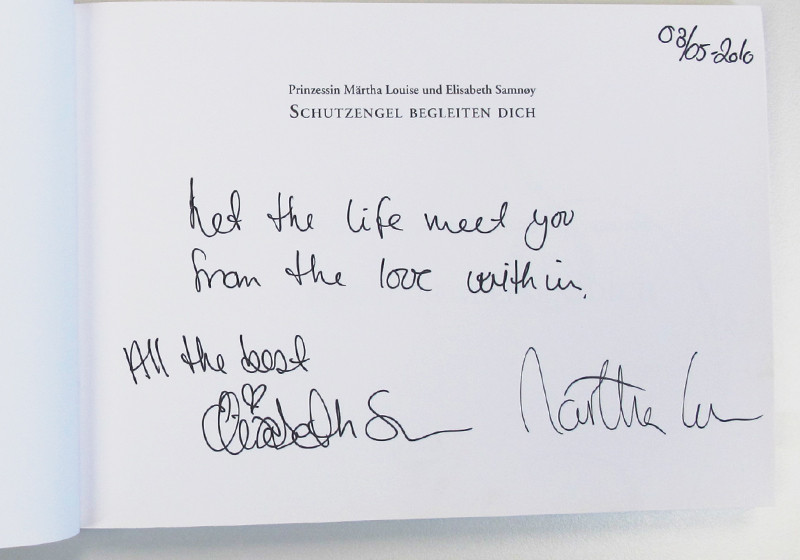 03/05-2010
Prinzessin Märtha Louise und Elisabeth Samnøy
SCHUTZENGEL BEGLEITEN DICH
Let the life meet you
from the love within.
All the best
Elisabeth S
Märtha Lou